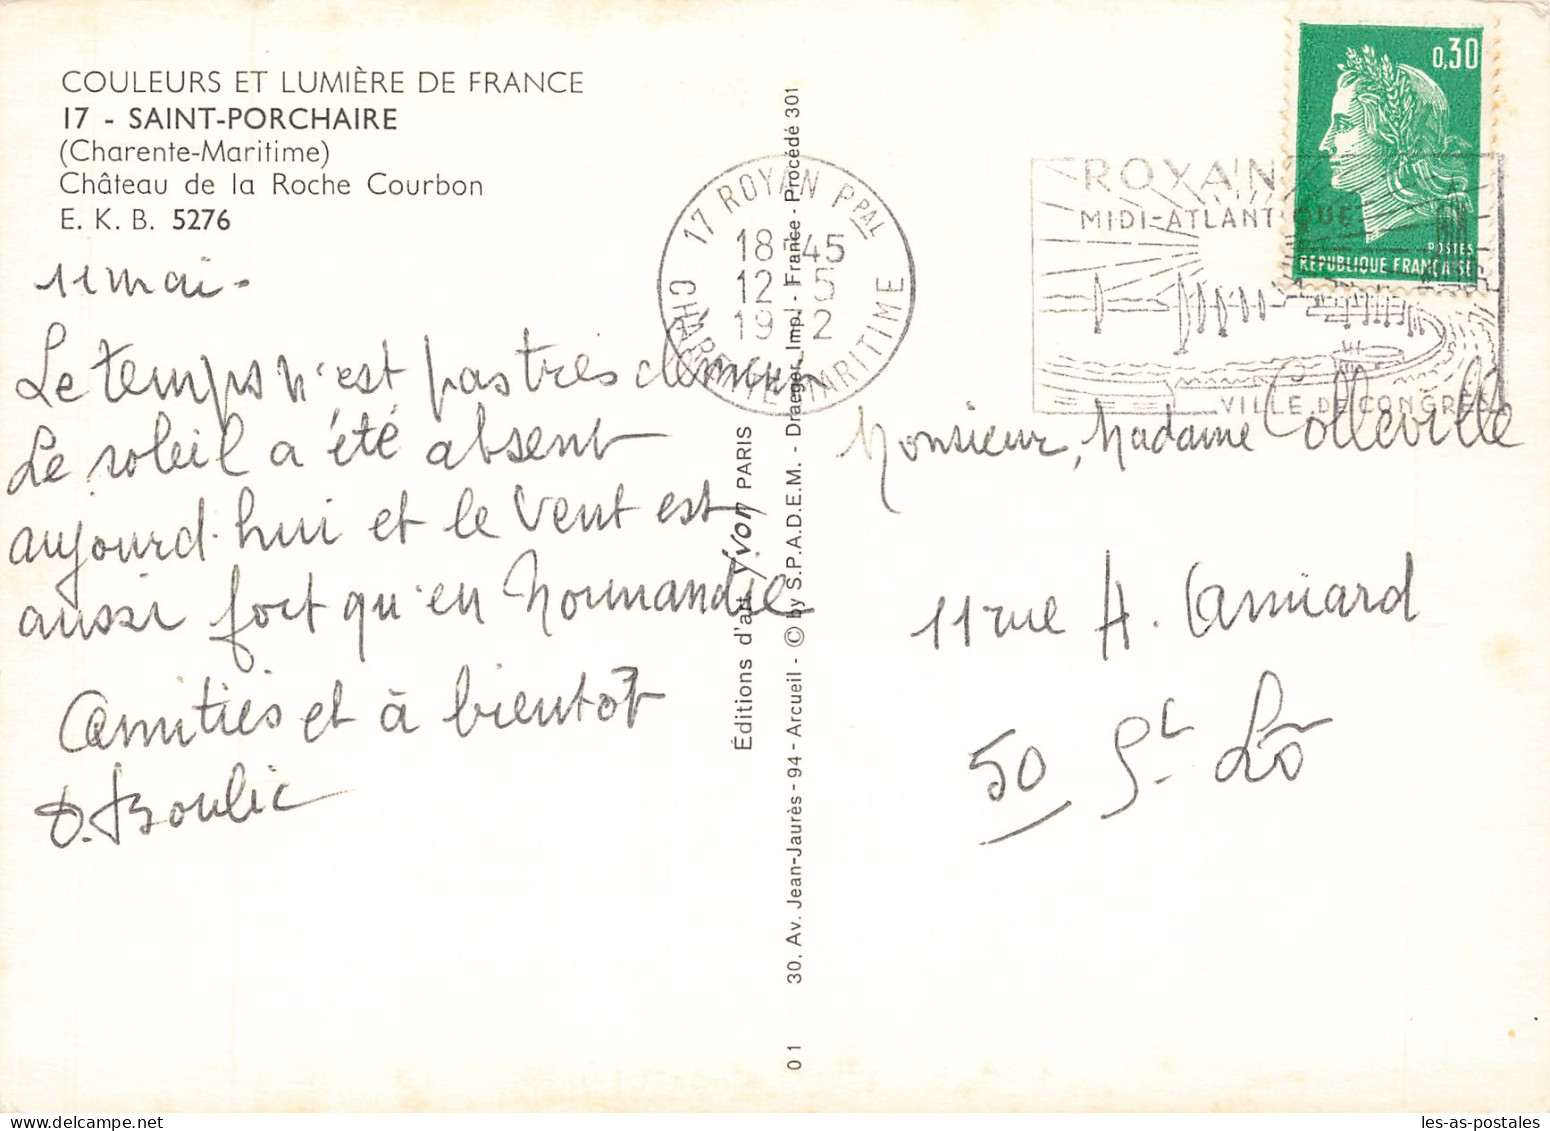 COULEURS ET LUMIÈRE DE FRANCE
17 - SAINT-PORCHAIRE
(Charente-Maritime)
Château de la Roche Courbon
E. K. B. 5276
11 mai -
Le temps n'est pas très
Le soleil a été absent
aujourd'hui et le vent est
aussi fort qu'en Normandie
Amitiés et à bientôt
Éditions d'art Yvon PARIS
30. Av. Jean-Jaurès - 94 - Arcueil - © by S.P.A.D.E.M. - Draeger, Imp. - France - Procédé 301
01
17 ROYAN PPAL
18-45
12-5
19 2
CHARENTE MARITIME
ROYAN
MIDI-ATLANTIQUE
VILLE DE CONGRES
0,30
POSTES
REPUBLIQUE FRANÇAISE
Monsieur, Madame Colleville
11 rue H. Amiard
50 St Lô
les-as-postales